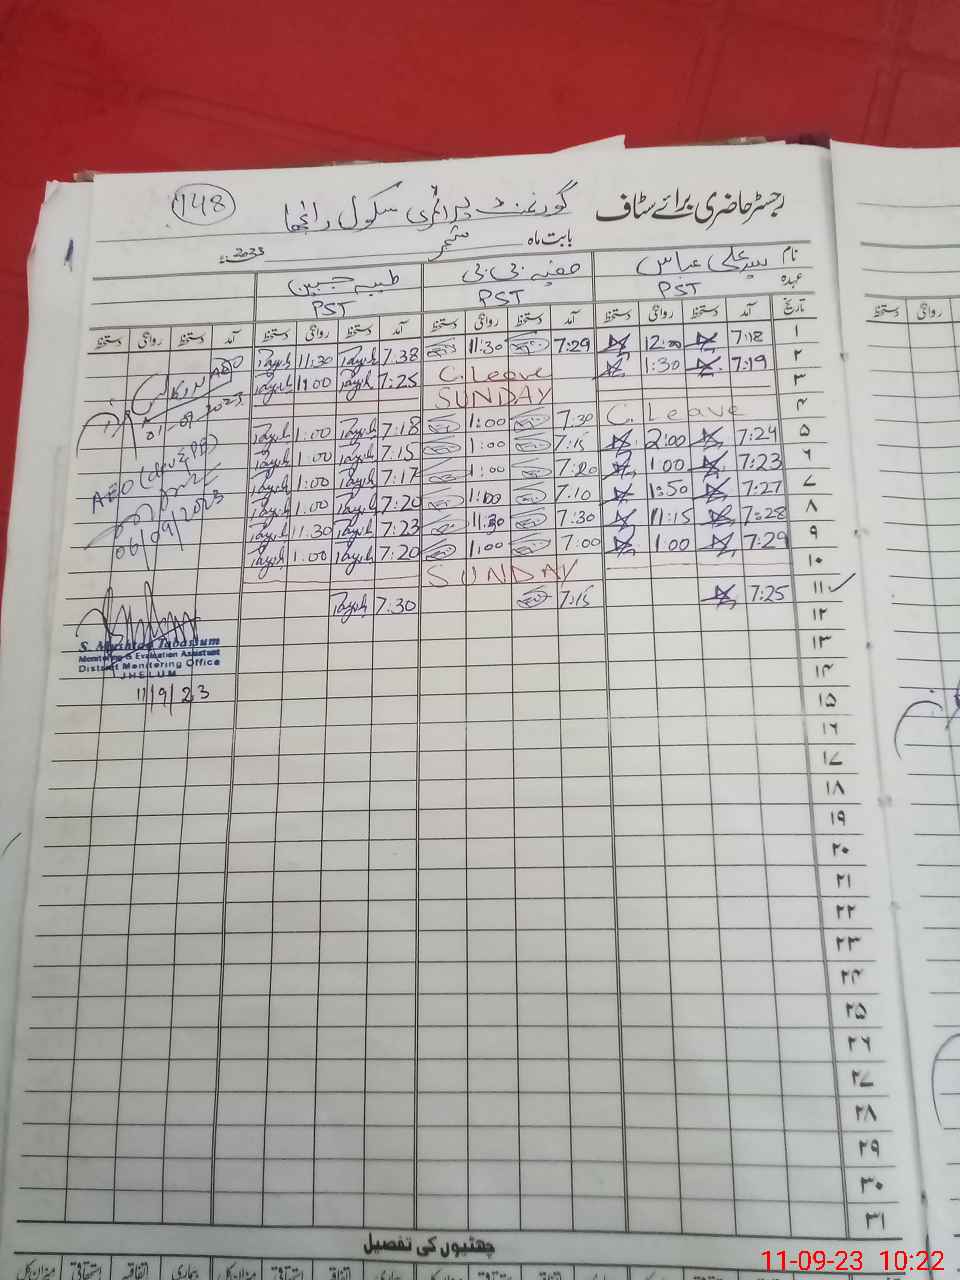 148
رجسٹر حاضری برائے سٹاف گورنمنٹ پرائمری سکول رانجھا
بابت ماہ ستمبر 2023ء
نام سید علی عباس صفیہ بی بی طیبہ جبین
عہدہ PST PST PST
تاریخ آمد دستخط روانگی دستخط آمد دستخط روانگی دستخط آمد دستخط روانگی دستخط آمد دستخط روانگی دستخط
۱ 7:18 12:00 7:29 11:30 7:38 11:30
۲ 7:19 1:30 C. Leave 7:25 1:00
۳ SUNDAY
۴ C. Leave 7:30 1:00 7:18 1:00
۵ 7:24 2:00 7:15 1:00 7:15 1:00
۶ 7:23 1:00 7:20 1:00 7:17 1:00
۷ 7:27 1:50 7:10 1:00 7:20 1:00
۸ 7:28 11:15 7:30 11:30 7:23 11:30
۹ 7:29 1:00 7:00 1:00 7:20 1:00
۱۰ SUNDAY
۱۱ 7:25 7:15 7:30
۱۲
۱۳
۱۴
۱۵
۱۶
۱۷
۱۸
۱۹
۲۰
۲۱
۲۲
۲۳
۲۴
۲۵
۲۶
۲۷
۲۸
۲۹
۳۰
۳۱
AEO
01-09-2023
AEO
06/09/2023
S. Mushtaq Tabassum
Monitoring & Evaluation Assistant
District Monitering Office
JHELUM
11/9/23
چھٹیوں کی تفصیل
میزان کل استحقاقی اتفاقیہ بیماری میزان کل استحقاقی اتفاقیہ بیماری
دستخط روانگی
11-09-23 10:22